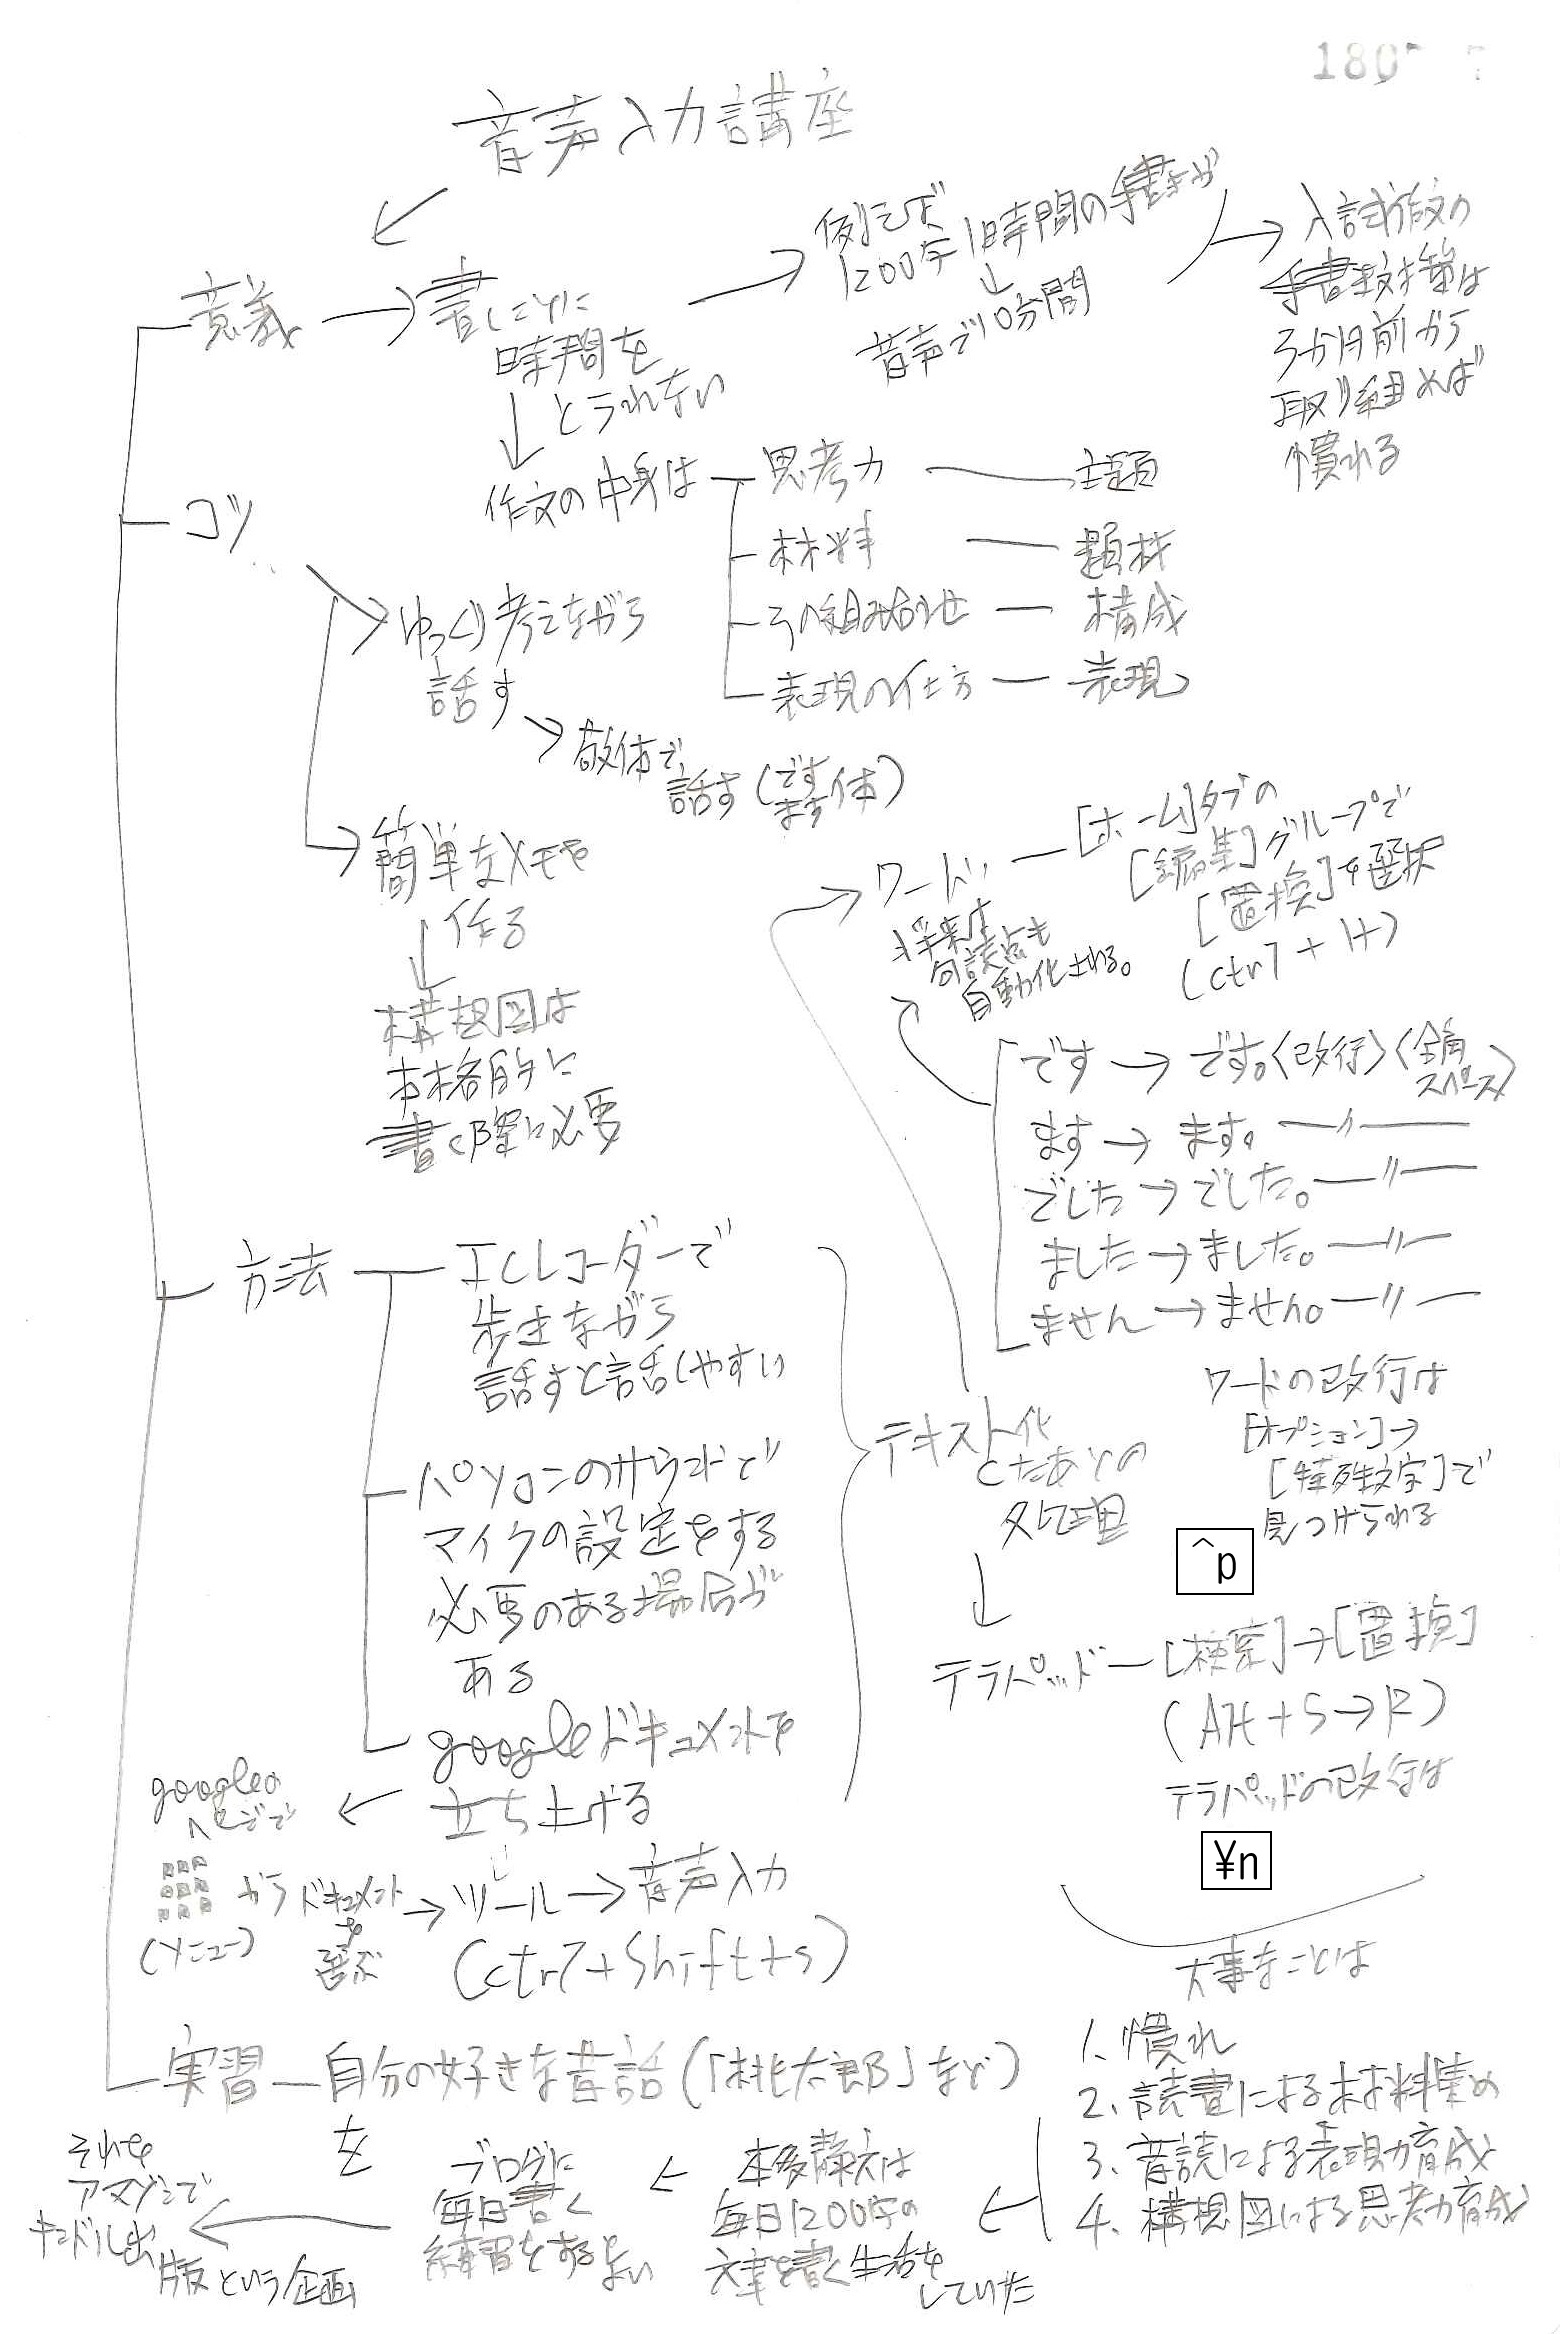 音声入力講座
意義
書くことに
時間を
とられない
例えば
1200字1時間の手書きが
↓
音声で10分間
入試作文の
手書き対策は
3か月前から
取り組めば
慣れる
作文の中身は
思考力 — 主題
材料 — 題材
その組み合わせ — 構成
表現の仕方 — 表現
コツ
ゆっくり考えながら
話す
敬体で
話す(です
ます体)
簡単なメモを
作る
構想図は
本格的に
書く際に必要
方法
ICレコーダーで
歩きながら
話すと話しやすい
パソコンのサウンドで
マイクの設定をする
必要のある場合が
ある
googleドキュメントを
立ち上げる
googleの
ページで
(メニュー)
から
ドキュメント
を
選ぶ
→ツール→音声入力
(ctrl+Shift+s)
テキスト化
したあとの
処理
ワード
[ホーム]タブの
[編集]グループで
[置換]を選択
(ctrl+H)
将来は
句読点も
自動化される。
です→です。〈改行〉〈全角
スペース〉
ます→ます。—〃—
でした→でした。—〃—
ました→ました。—〃—
ません→ません。—〃—
ワードの改行は
[オプション]→
[特殊文字]で
見つけられる
^p
テラパッド—[検索]→[置換]
(Alt+S→R)
テラパッドの改行は
¥n
大事なことは
1、慣れ
2、読書による材料集め
3、音読による表現力育成
4、構想図による思考力育成
実習—自分の好きな昔話(「桃太郎」など)
を
本多静六は
毎日1200字の
文章を書く生活を
していた
ブログに
毎日書く
練習をするとよい
それを
アマゾンで
キンドル出
版という企画